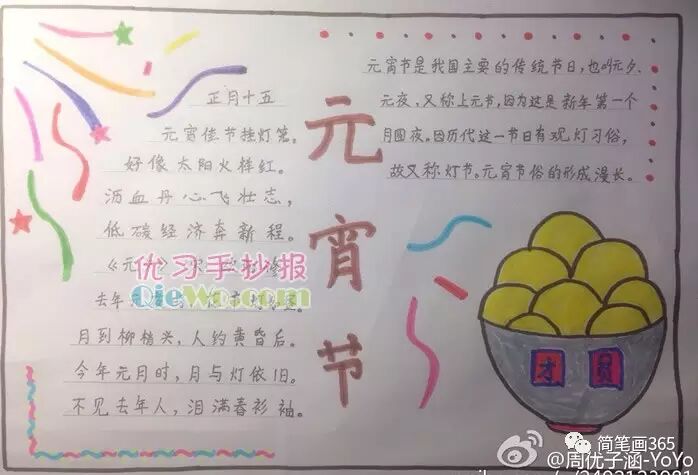 正月十五
元宵佳节挂灯笼。
好像太阳火样红。
沥血丹心飞壮志,
低碳经济奔新程。
《元
去年
月到柳梢头,人约黄昏后。
今年元月时,月与灯依旧。
不见去年人,泪满春衫袖。
元
宵
节
元宵节是我国主要的传统节日,也叫元夕、
元夜,又称上元节,因为这是新年第一个
月圆夜。因历代这一节日有观灯习俗,
故又称灯节。元宵节俗的形成漫长。
才 员
优习手抄报
QieWo.com
简笔画365
@周优子涵-YoYo